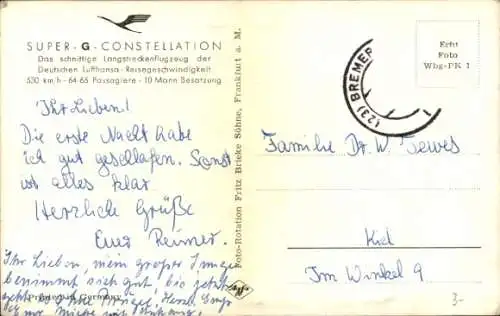 SUPER-G-CONSTELLATION
Das schnittige Langstreckenflugzeug der
Deutschen Lufthansa · Reisegeschwindigkeit
530 km/h - 64-65 Passagiere - 10 Mann Besatzung
Ihr Lieben!
Die erste Nacht habe
ich gut geschlafen. Sonst
ist alles klar.
Herzliche Grüße
Euer Reimer.
Ihr Lieben, mein großer Junge
benimmt sich gut, bis jetzt
geht es ohne
Printed in Germany
Foto-Rotation Fritz Brieke Söhne, Frankfurt a. M.
(23) BREMEN
Echt
Foto
Wbg-PK 1
Familie Dr. W. Tewes
Kiel
Im Winkel 9
3-